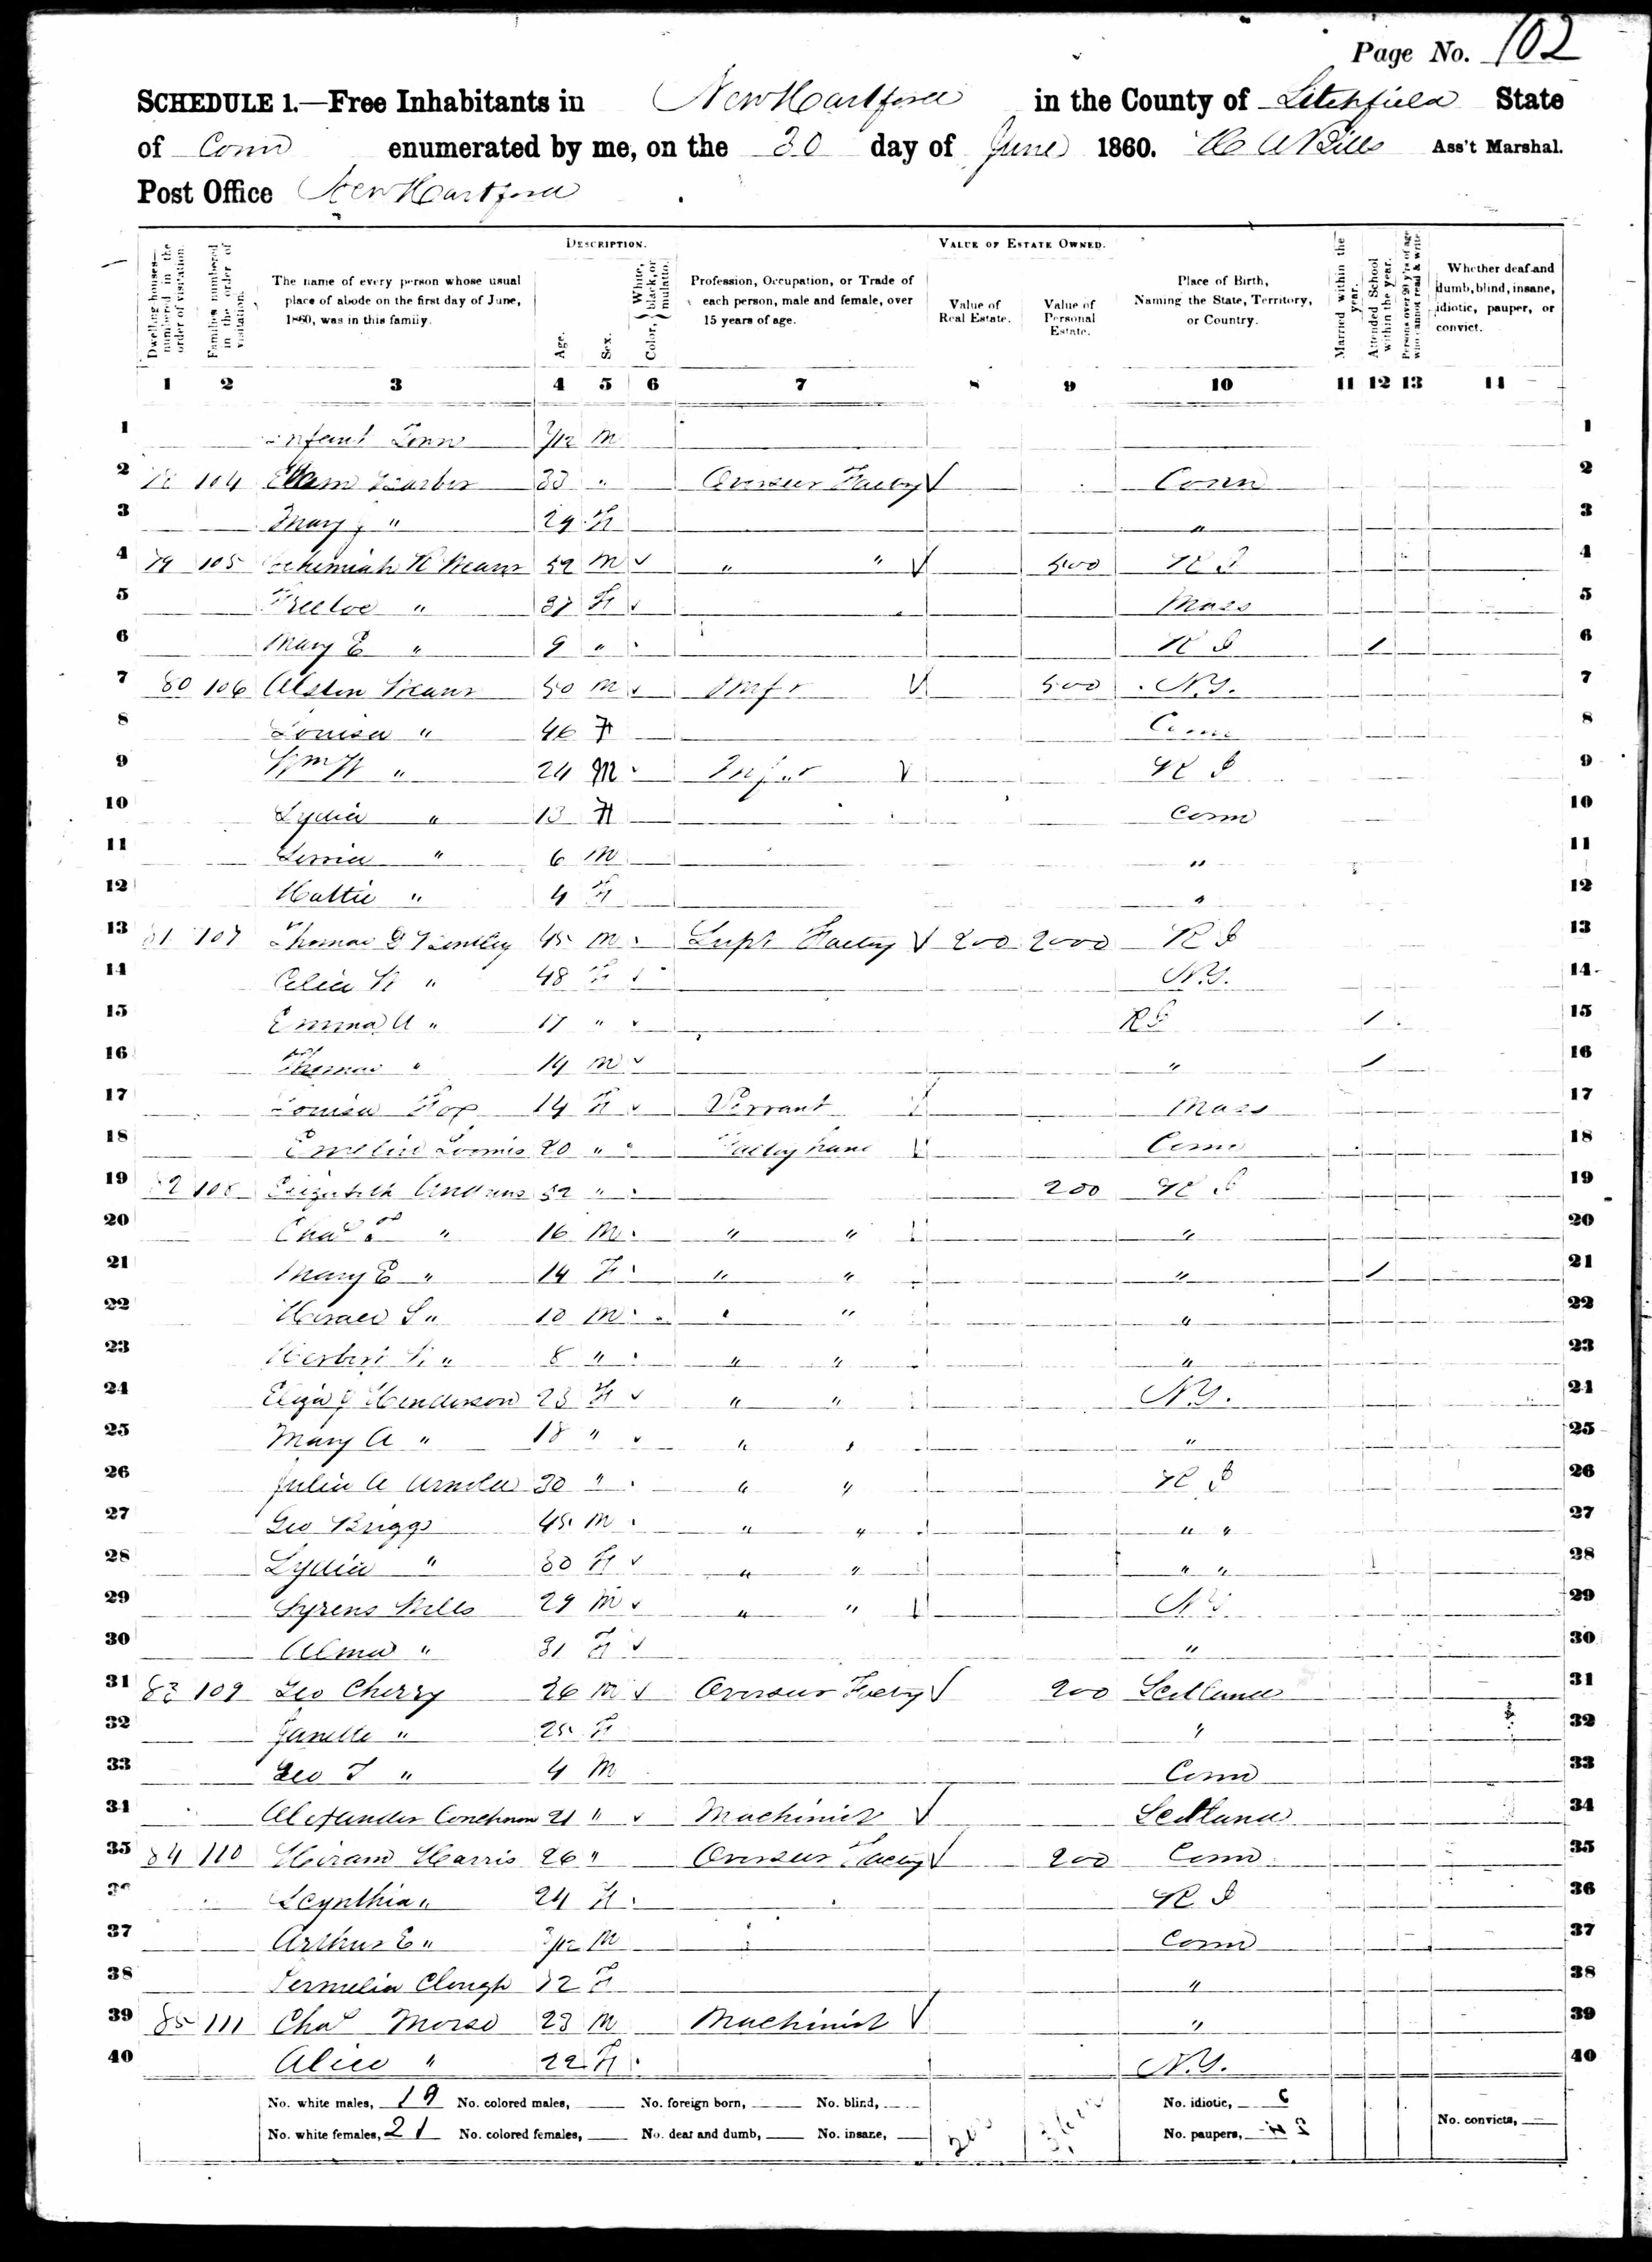 Page No. 102
SCHEDULE 1.—Free Inhabitants in New Hartford in the County of Litchfield State
of Conn enumerated by me, on the 30 day of June 1860. Ass't Marshal.
Post Office New Hartford
DESCRIPTION. VALUE OF ESTATE OWNED.
Dwelling-houses—numbered in the order of visitation. Families numbered in the order of visitation. The name of every person whose usual place of abode on the first day of June, 1860, was in this family. Age. Sex. Color, { White, black, or mulatto. Profession, Occupation, or Trade of each person, male and female, over 15 years of age. Value of Real Estate. Value of Personal Estate. Place of Birth, Naming the State, Territory, or Country. Married within the year. Attended School within the year. Persons over 20 y'rs of age who cannot read & write. Whether deaf and dumb, blind, insane, idiotic, pauper, or convict.
1 2 3 4 5 6 7 8 9 10 11 12 13 14
1 Infant M 1
2 104 33 " Overseer Factory Conn 2
3 Mary J " 29 F " 3
4 79 105 52 M " " 500 R I 4
5 " 37 F Mass 5
6 Mary E " 9 " R I / 6
7 80 106 50 M 500 N.Y. 7
8 Louisa " 46 F Conn 8
9 " 24 M R I 9
10 Lydia " 13 F Conn 10
11 " 6 M " 11
12 Hattie " 4 F " 12
13 81 107 Thomas G Bentley 45 M Supt Factory 200 2000 R I 13
14 Celia " 48 F N.Y. 14
15 Emma A " 17 " R I / 15
16 Thomas " 14 M " / 16
17 Louisa Fox 14 F Servant Mass 17
18 Emeline Loomis 20 " Factory hand Conn 18
19 82 108 Elizabeth Andrews 52 " 200 R I 19
20 Chas " 16 M " " " 20
21 Mary E " 14 F " " " / 21
22 Horace S " 10 M " " " 22
23 Herbert " 8 " " " " 23
24 Eliza J Henderson 23 F " " N.Y. 24
25 Mary A " 18 " " " " 25
26 Julia A Arnold 30 " " " R I 26
27 Geo Briggs 45 M " " " " 27
28 Lydia " 30 F " " " " 28
29 29 M " " N.Y. 29
30 Alma " 31 F " 30
31 83 109 Geo Cherry 26 M Overseer Factory 200 Scotland 31
32 Janette " 25 F " 32
33 Geo T " 4 M Conn 33
34 Alexander 21 " Machinist Scotland 34
35 84 110 Hiram Harris 26 " Overseer Factory 200 Conn 35
36 Scynthia " 24 F R I 36
37 Arthur E " 3/12 M Conn 37
38 Permelia Clough 12 F " 38
39 85 111 Chas Morse 23 M Machinist " 39
40 Alice " 22 F N.Y. 40
No. white males, 19 No. colored males, No. foreign born, No. blind, No. idiotic, No. convicts,
No. white females, 21 No. colored females, No. deaf and dumb, No. insane, No. paupers,